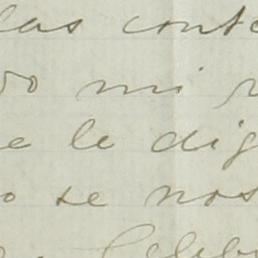 las cont
do mi
e le dig
o se nos
Celeb